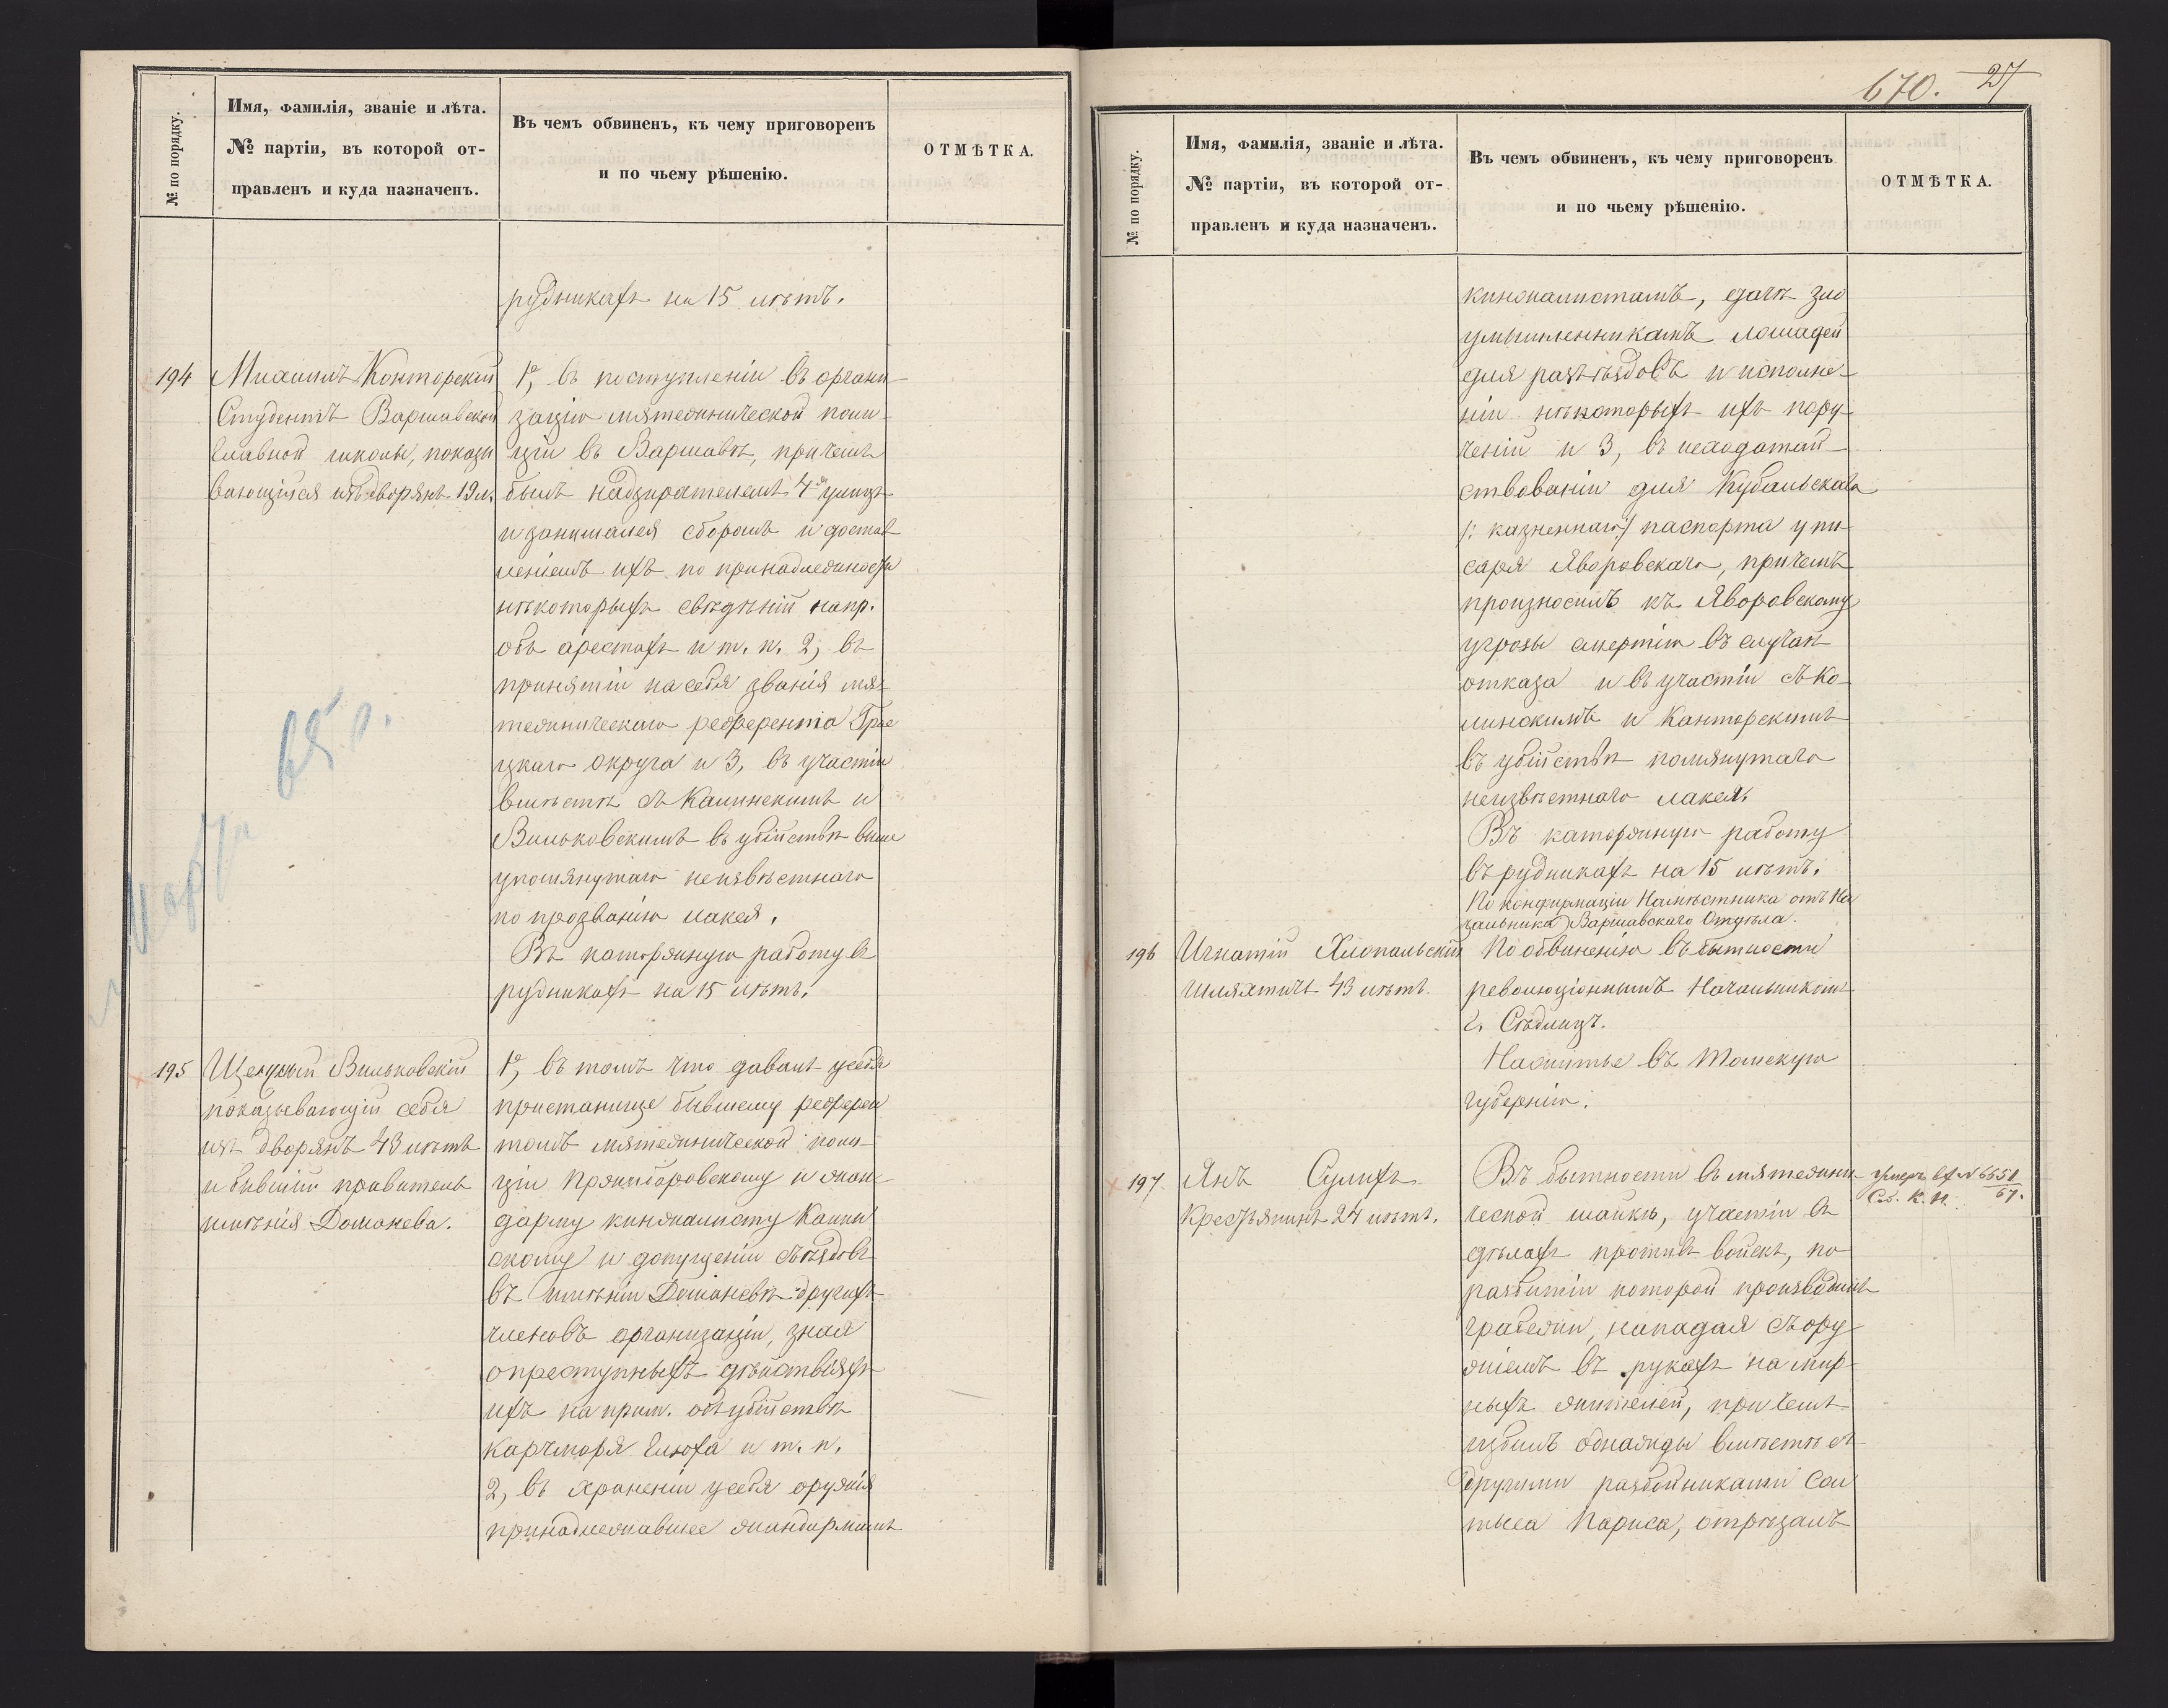 № по порядку.
Имя, фамилія, званіе и лѣта.
№ партіи, въ которой от-
правленъ и куда назначенъ.
Въ чемъ обвиненъ, къ чему приговоренъ
и по чьему рѣшенію.
ОТМѢТКА.
рудникахъ на 15 лѣтъ.
194
Михаилъ Конторскій
Студентъ Варшавской
Главной школы, показы
вающійся изъ дворянъ 19 л.
1е, въ поступленіи въ органи-
зацію мятежнической поли-
ціи въ Варшавѣ, причемъ
былъ надзирателемъ 4й улицы
и занимался сборомъ и достав
леніемъ ихъ по принадлежности
нѣкоторыхъ свѣдѣній напр.
объ арестахъ и т. п. 2, въ
принятіи на себя званія мя-
тежническаго референта Грое
цкаго округа и 3, въ участіи
вмѣстѣ съ Калинскимъ и
Вильковскимъ въ убійствѣ выше
упомянутаго неизвѣстнаго
по прозванію лакея.
Въ каторжную работу въ
рудникахъ на 15 лѣтъ.
195
Щенсный Вильковскій
показывающій себя
изъ дворянъ 43 лѣтъ
и бывшій правитель
имѣнія Доманева.
1е, въ томъ что давалъ у себя
пристанище бывшему референ
томъ мятежнической поли-
ціи и жан-
дарму кинжалисту Калин
скому и допущеніи съѣздовъ
въ имѣніи Доманевѣ другихъ
членовъ организаціи, зная
о преступныхъ дѣйствіяхъ
ихъ наприм. объ убійствѣ
карчмаря и т. п.
2, въ храненіи у себя оружія
принадлежавшее жандармамъ
670. 27
№ по порядку.
Имя, фамилія, званіе и лѣта.
№ партіи, въ которой от-
правленъ и куда назначенъ.
Въ чемъ обвиненъ, къ чему приговоренъ
и по чьему рѣшенію.
ОТМѢТКА.
кинжалистамъ, дачѣ зло
умышленникамъ лошадей
для разъѣздовъ и исполне-
ніи нѣкоторыхъ ихъ пору-
ченій и 3, въ исходатай-
ствованіи для Кубальскаго
/: казненнаго :/ паспорта у пи-
саря Яворовскаго, причемъ
произносилъ къ Яворовскому
угрозы смертію въ случаѣ
отказа и въ участіи съ Ка-
линскимъ и Канторскимъ
въ убійствѣ помянутаго
неизвѣстнаго лакея.
Въ каторжную работу
въ рудникахъ на 15 лѣтъ.
По конфирмаціи Намѣстника отъ На
чальника Варшавскаго Отдѣла.
196
Игнатій Хлопальскій
шляхтичъ 43 лѣтъ.
По обвиненію въ бытности
революціоннымъ Начальникомъ
г. Сѣдлицъ.
На житье въ Томскую
губернію.
197
Янъ Сулихъ
Крестьянинъ 24 лѣтъ.
Въ бытности въ мятежни-
ческой шайкѣ, участіи въ
дѣлахъ противъ войскъ, по
разбитіи которой производилъ
грабежи, нападая съ ору-
жіемъ въ рукахъ на мир-
ныхъ жителей, причемъ
избилъ однажды вмѣстѣ съ
другими разбойниками Сол
тыса Париса, отрѣзалъ
умеръ № 6651
67.